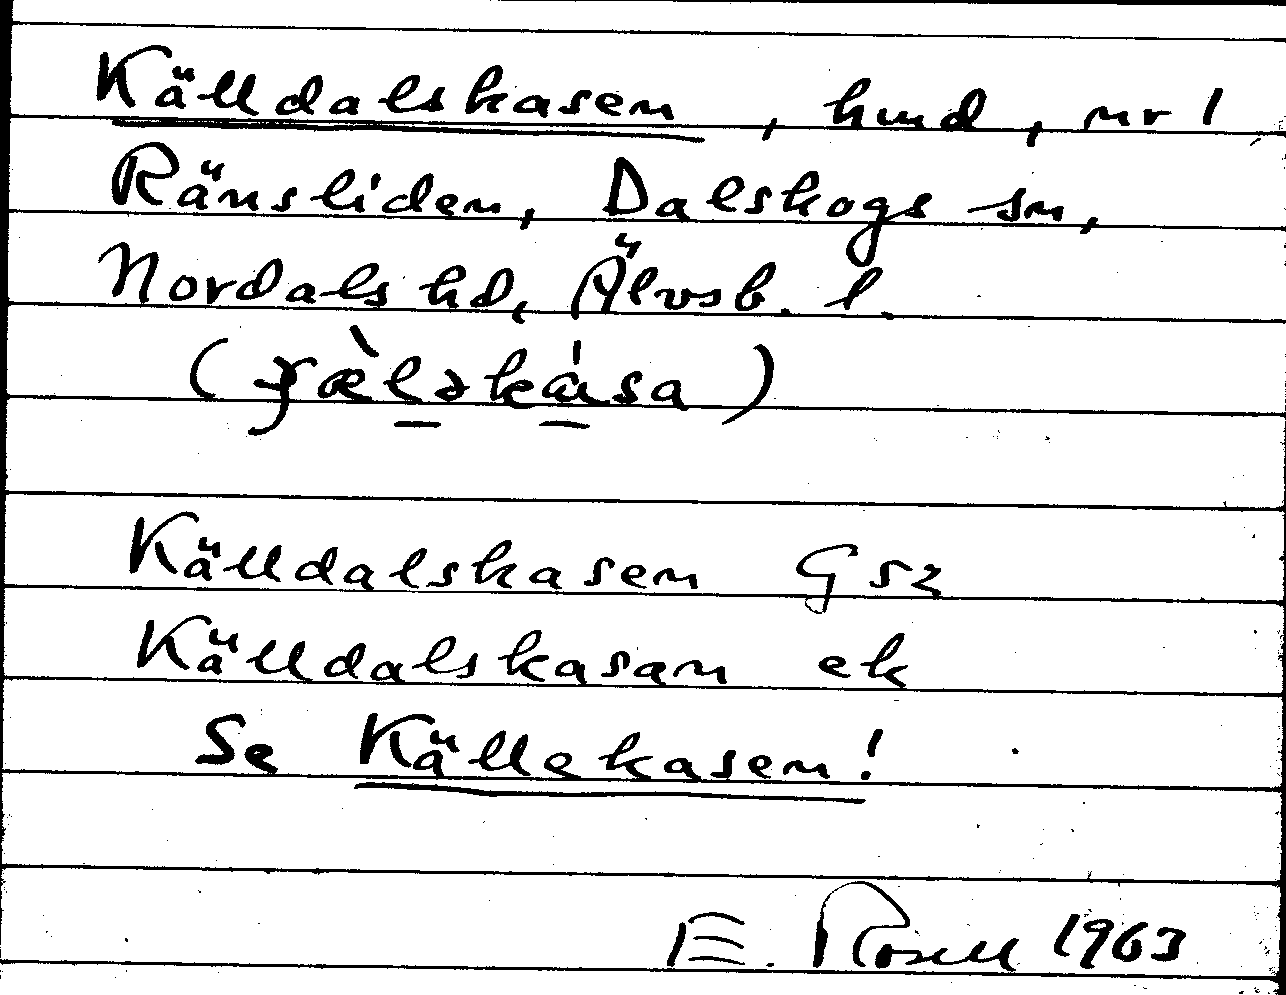 Källdalskasen, hmd, nr 1
Ränsliden, Dalskogs sn,
Nordals hd, Älvsb. l.
Källdalskasen Gsz
Källdalskasan ek
Se Källekasen!
E. Rosell 1963